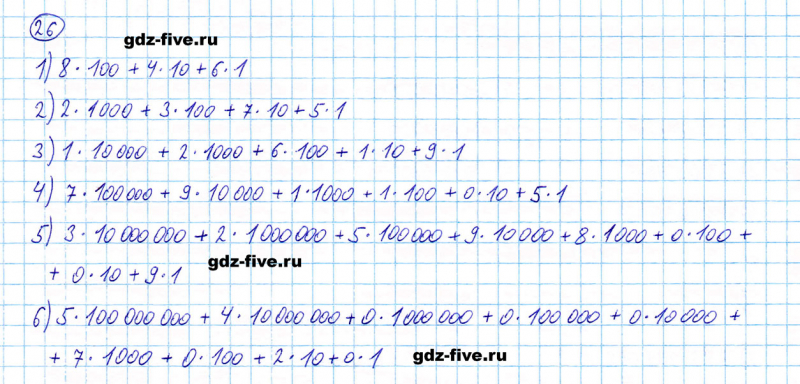 26
gdz-five.ru
1) 8·100 + 4·10 + 6·1
2) 2·1000 + 3·100 + 7·10 + 5·1
3) 1·10 000 + 2·1000 + 6·100 + 1·10 + 9·1
4) 7·100 000 + 9·10 000 + 1·1000 + 1·100 + 0·10 + 5·1
5) 3·10 000 000 + 2·1 000 000 + 5·100 000 + 9·10 000 + 8·1000 + 0·100 +
gdz-five.ru
+ 0·10 + 9·1
6) 5·100 000 000 + 4·10 000 000 + 0·1 000 000 + 0·100 000 + 0·10 000 +
+ 7·1000 + 0·100 + 2·10 + 0·1
gdz-five.ru